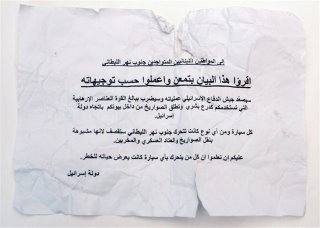 إلى المواطنين اللبنانيين المتواجدين جنوب نهر الليطاني
اقرؤا هذا البيان بتمعن واعملوا حسب توجيهاته
سيصعد جيش الدفاع الإسرائيلي عملياته وسيضرب ببالغ القوة العناصر الإرهابية
التي تستخدمكم كدرع بشري وتطلق الصواريخ من داخل بيوتكم باتجاه دولة
إسرائيل.
كل سيارة ومن أي نوع كانت تتحرك جنوب نهر الليطاني ستقصف لانها مشبوهة
بنقل الصواريخ والعتاد العسكري والمخربين.
عليكم ان تعلموا ان كل من يتحرك بأي سيارة كانت يعرض حياته للخطر.
دولة إسرائيل